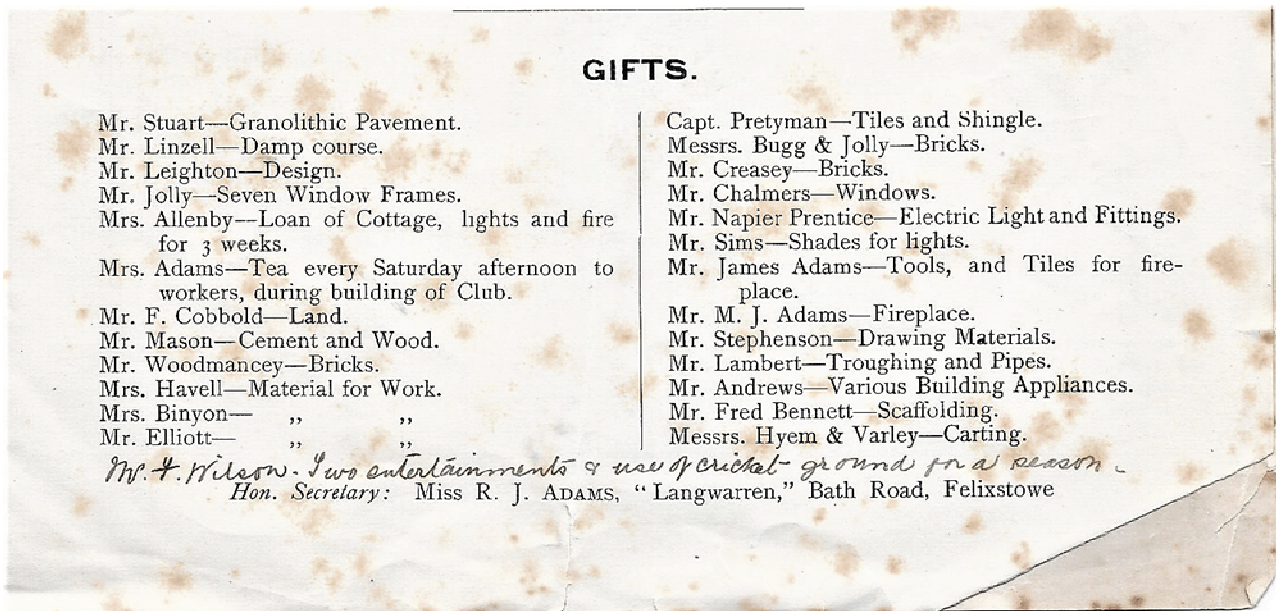 GIFTS.
Mr. Stuart—Granolithic Pavement.
Mr. Linzell—Damp course.
Mr. Leighton—Design.
Mr. Jolly—Seven Window Frames.
Mrs. Allenby—Loan of Cottage, lights and fire
for 3 weeks.
Mrs. Adams—Tea every Saturday afternoon to
workers, during building of Club.
Mr. F. Cobbold—Land.
Mr. Mason—Cement and Wood.
Mr. Woodmancey—Bricks.
Mrs. Havell—Material for Work.
Mrs. Binyon— „ „
Mr. Elliott— „ „
Capt. Pretyman—Tiles and Shingle.
Messrs. Bugg & Jolly—Bricks.
Mr. Creasey—Bricks.
Mr. Chalmers—Windows.
Mr. Napier Prentice—Electric Light and Fittings.
Mr. Sims—Shades for lights.
Mr. James Adams—Tools, and Tiles for fire-
place.
Mr. M. J. Adams—Fireplace.
Mr. Stephenson—Drawing Materials.
Mr. Lambert—Troughing and Pipes.
Mr. Andrews—Various Building Appliances.
Mr. Fred Bennett—Scaffolding.
Messrs. Hyem & Varley—Carting.
Mr. F. Wilson. Two entertainments & use of cricket ground for a season.
Hon. Secretary: Miss R. J. ADAMS, “Langwarren,” Bath Road, Felixstowe